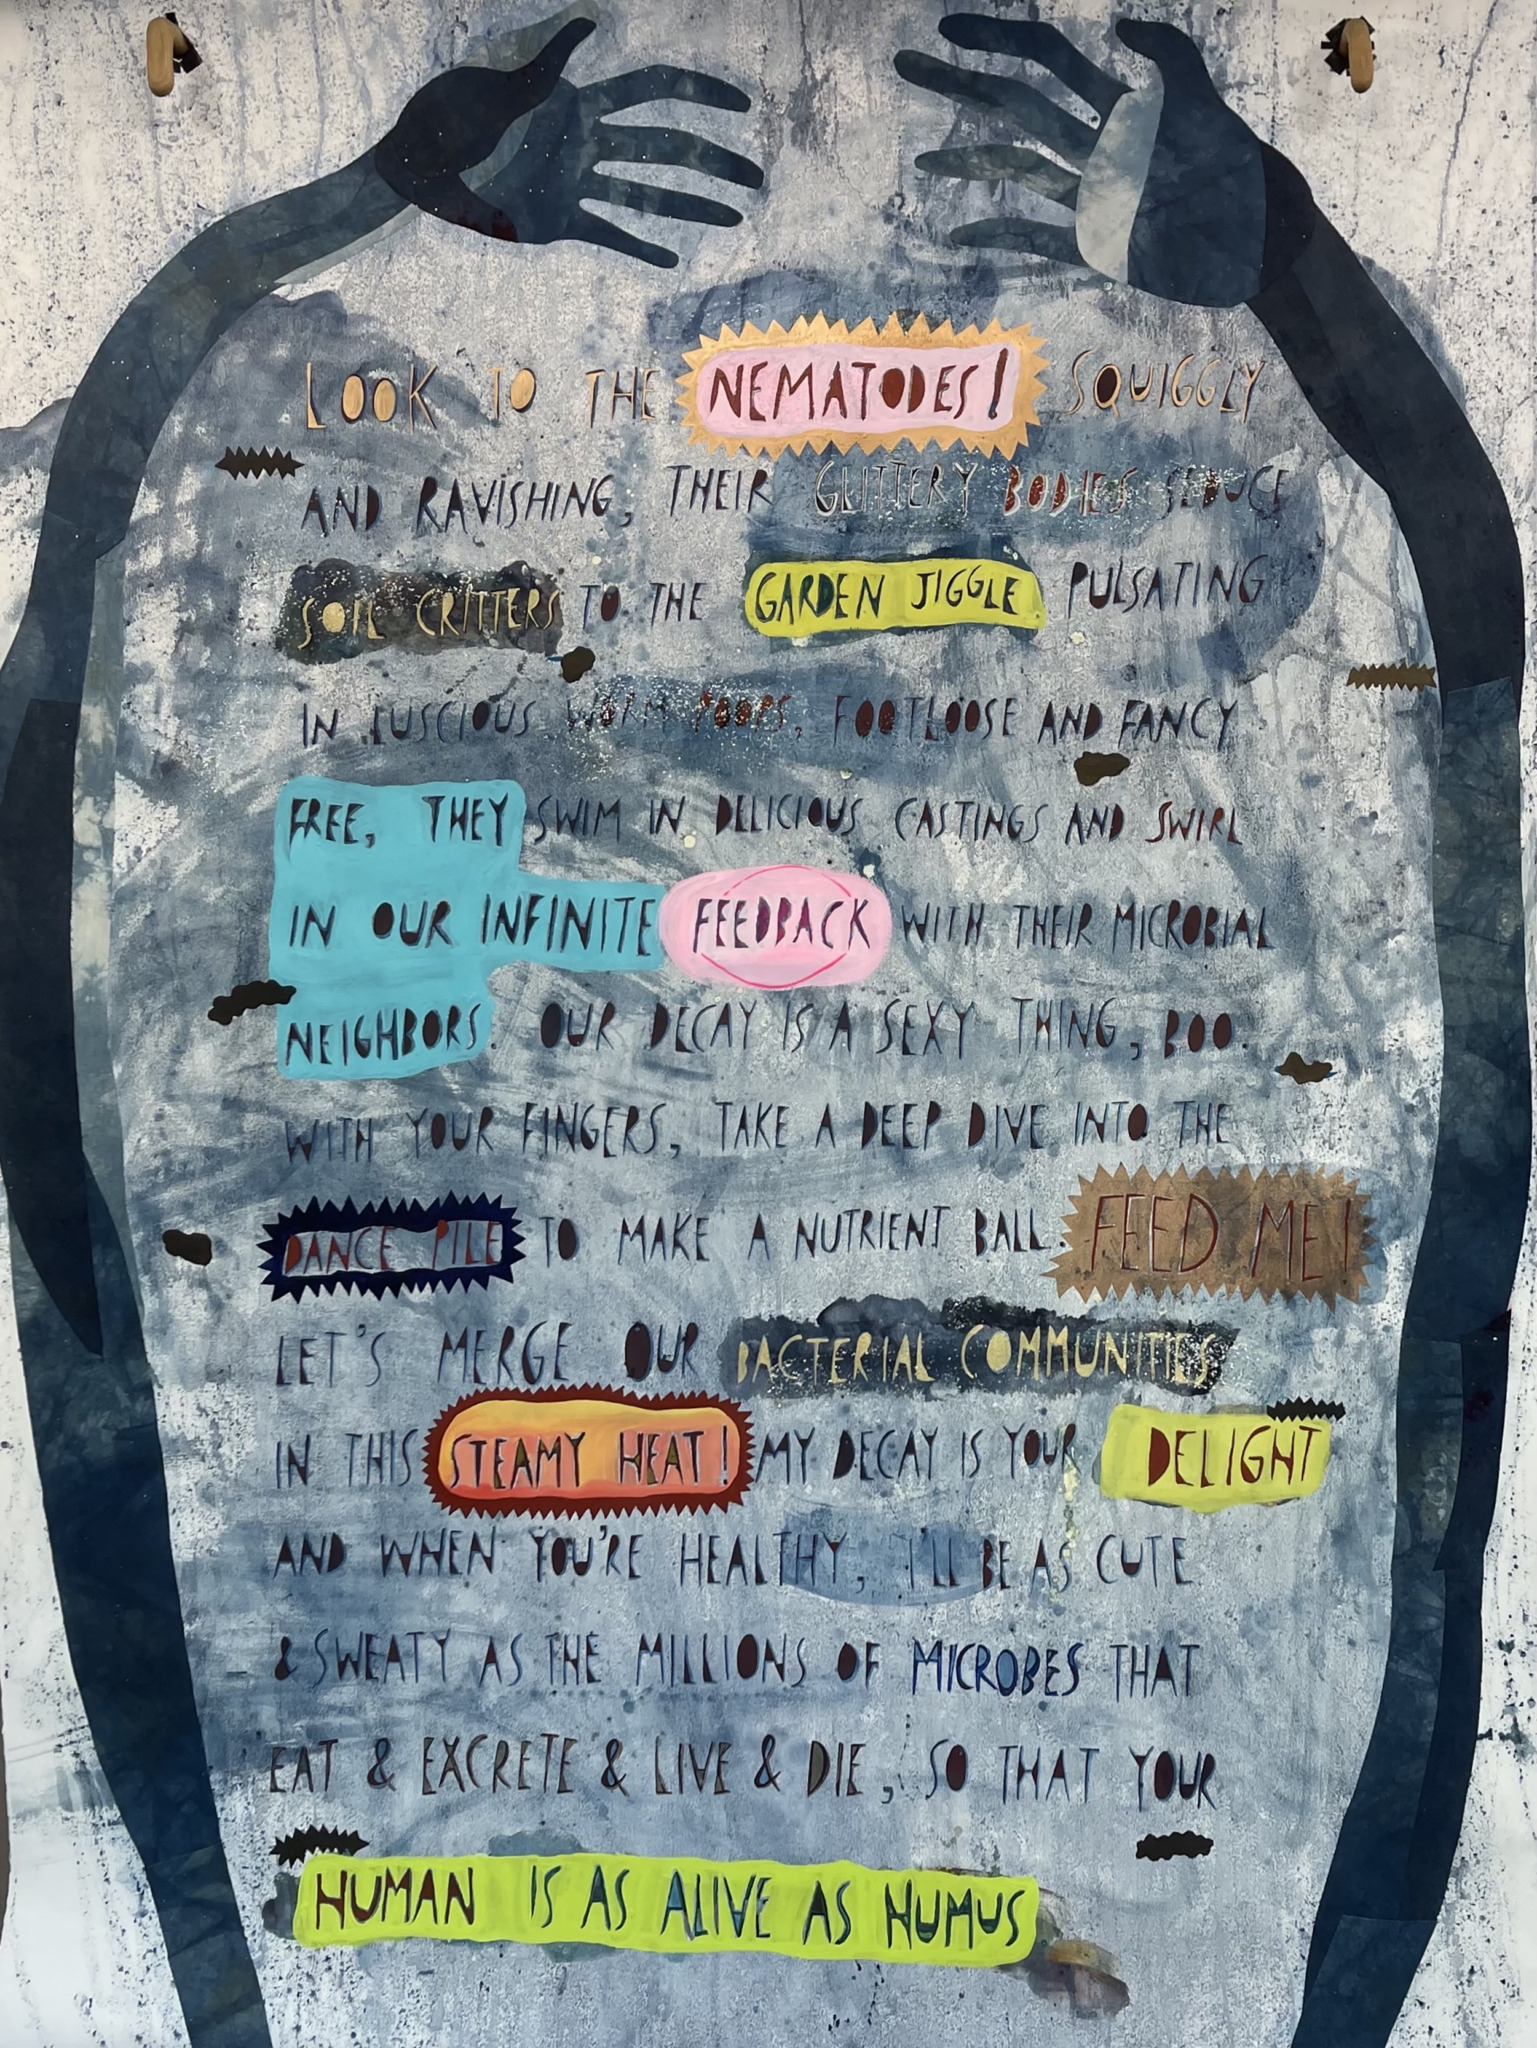 LOOK TO THE NEMATODES! SQUIGGLY
AND RAVISHING, THEIR GLITTERY BODIES SEDUCE
SOIL CRITTERS TO THE GARDEN JIGGLE PULSATING
IN LUSCIOUS WORM POOPS. FOOTLOOSE AND FANCY
FREE, THEY SWIM IN DELICIOUS CASTINGS AND SWIRL
IN OUR INFINITE FEEDBACK WITH THEIR MICROBIAL
NEIGHBORS. OUR DECAY IS A SEXY THING, BOO.
WITH YOUR FINGERS, TAKE A DEEP DIVE INTO THE
DANCE PILE TO MAKE A NUTRIENT BALL. FEED ME!
LET'S MERGE OUR BACTERIAL COMMUNITIES
IN THIS STEAMY HEAT! MY DECAY IS YOUR DELIGHT
AND WHEN YOU'RE HEALTHY, I'LL BE AS CUTE
& SWEATY AS THE MILLIONS OF MICROBES THAT
EAT & EXCRETE & LIVE & DIE, SO THAT YOUR
HUMAN IS AS ALIVE AS HUMUS